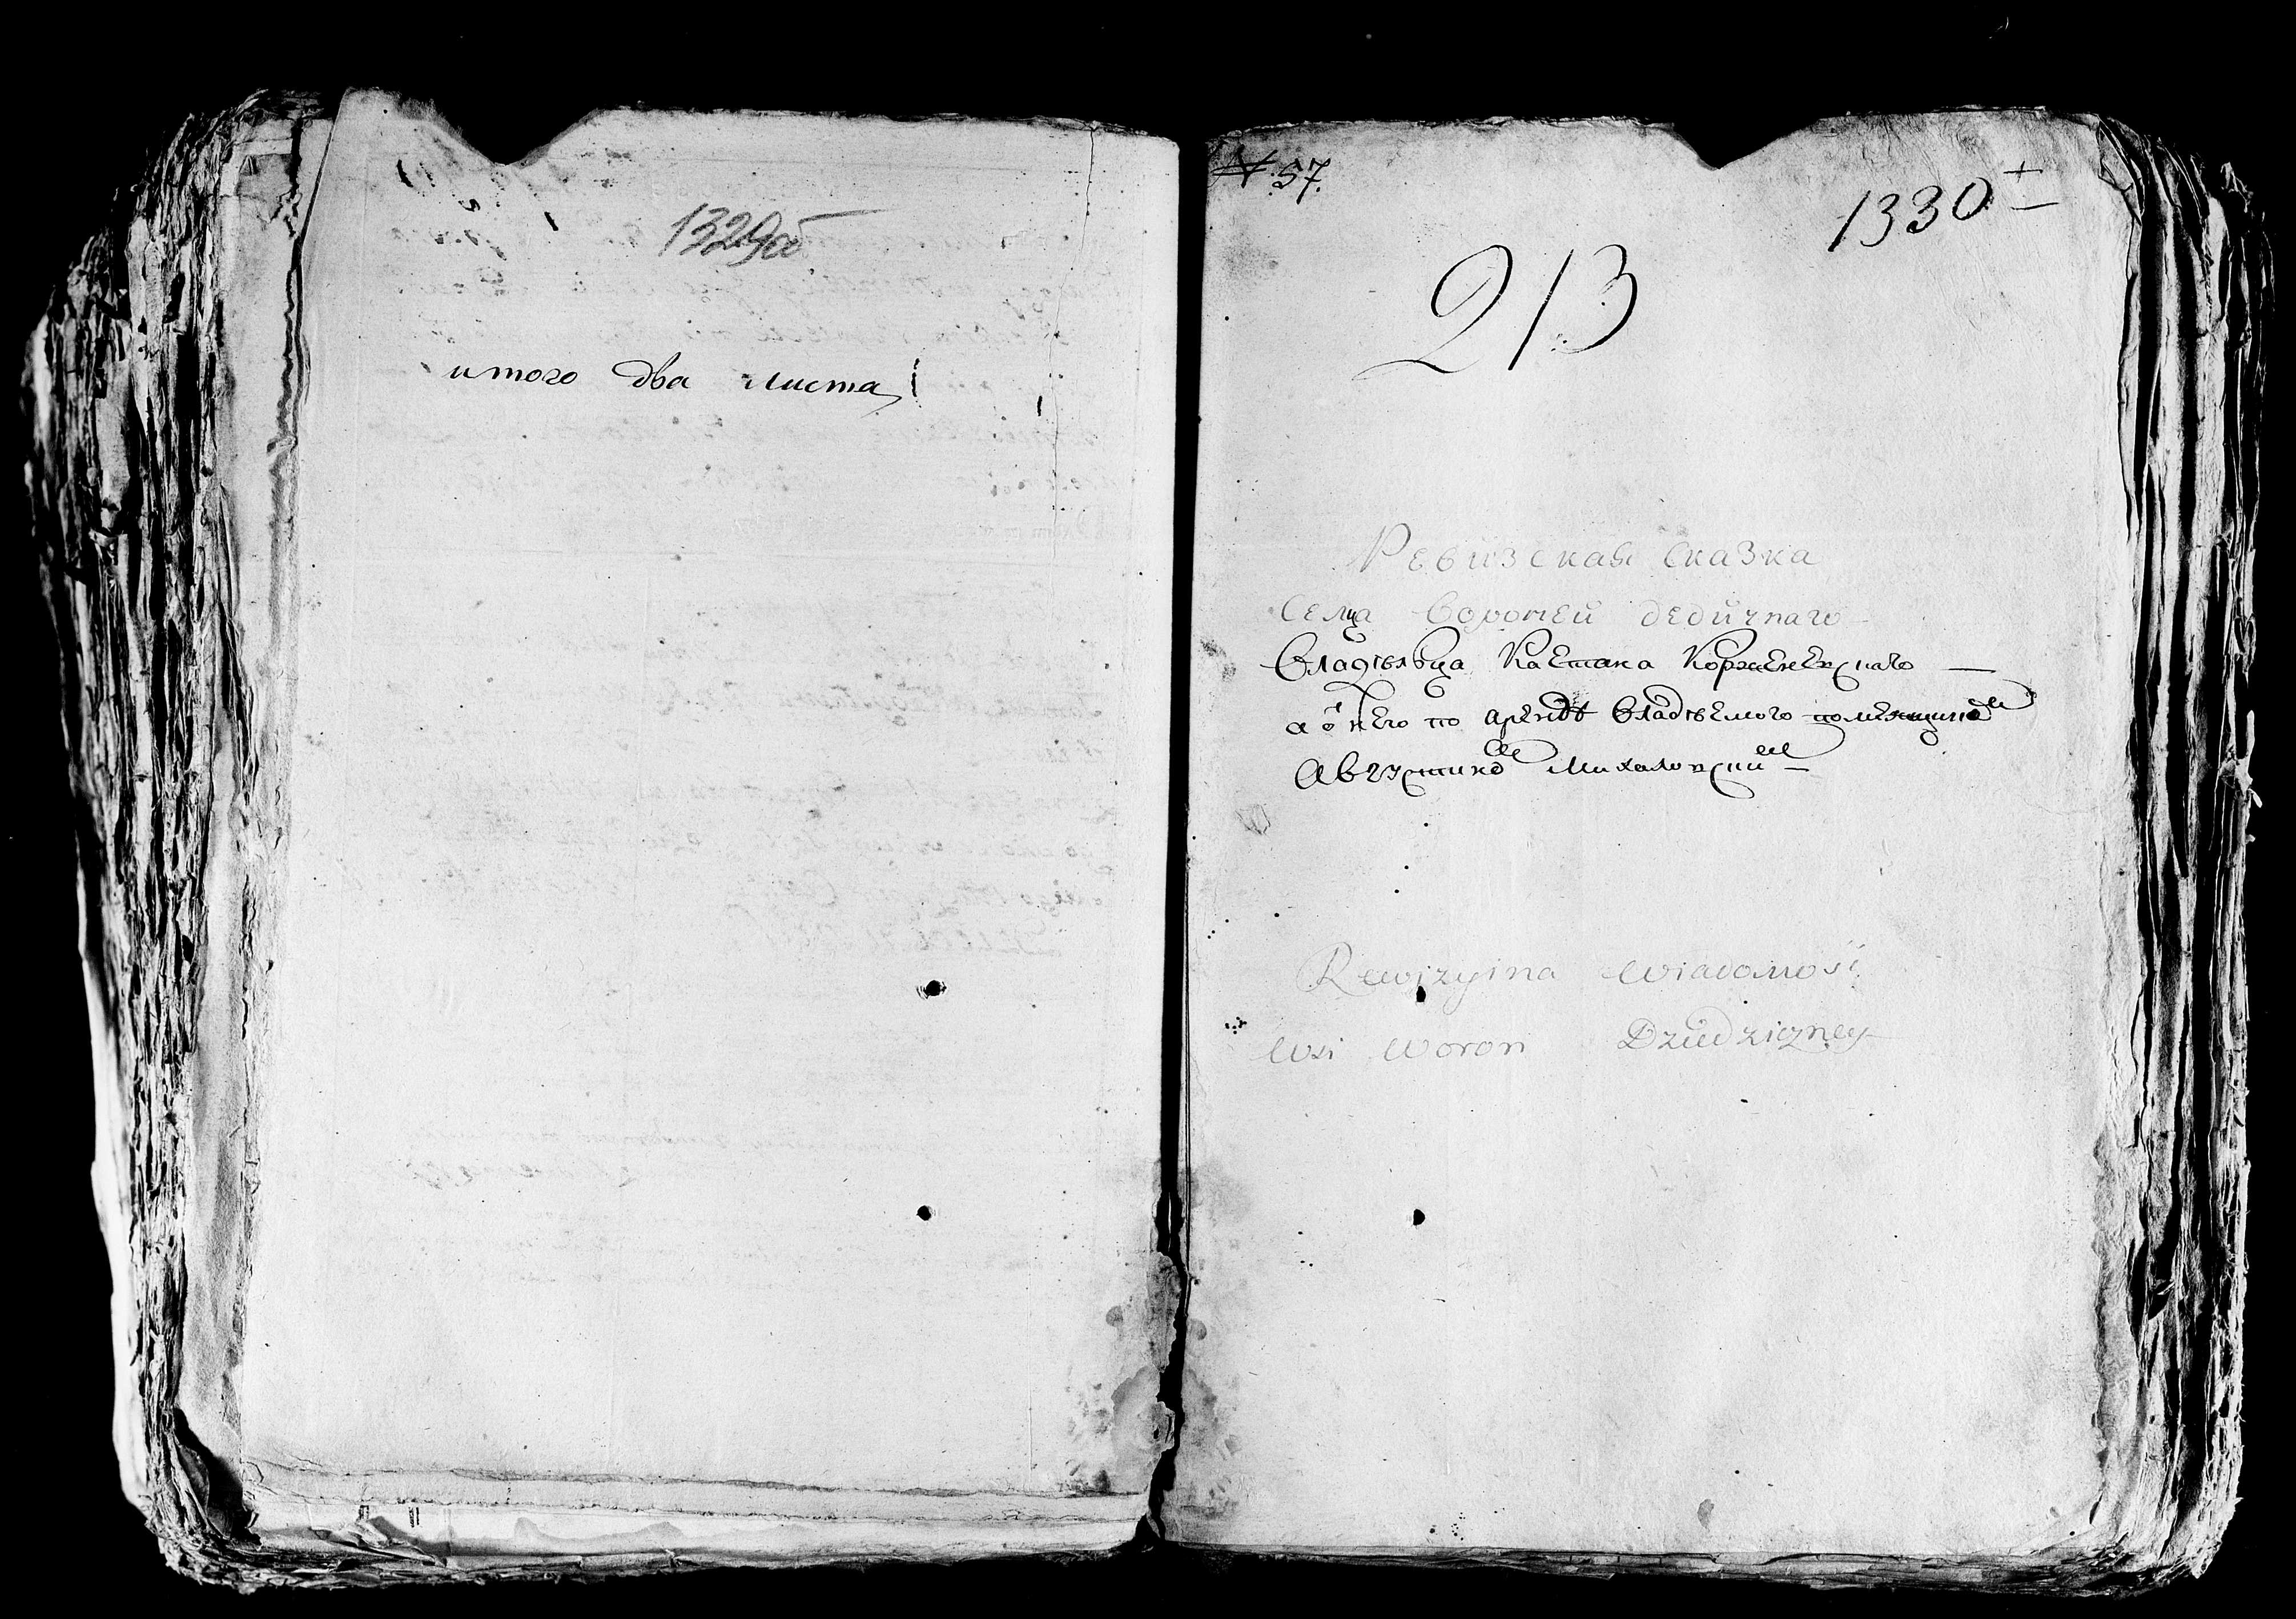 1329об
итого два листа
№ 57.
1330
213
Ревизская сказка
Селца Воронеи дедичнаго
Владѣльца Каетана Корженевскаго
а ѿ него по арендѣ Владѣемого помещиком
Августином Михаловским
Rewizyina Wiadomość
Wsi Woron Dziedziczney